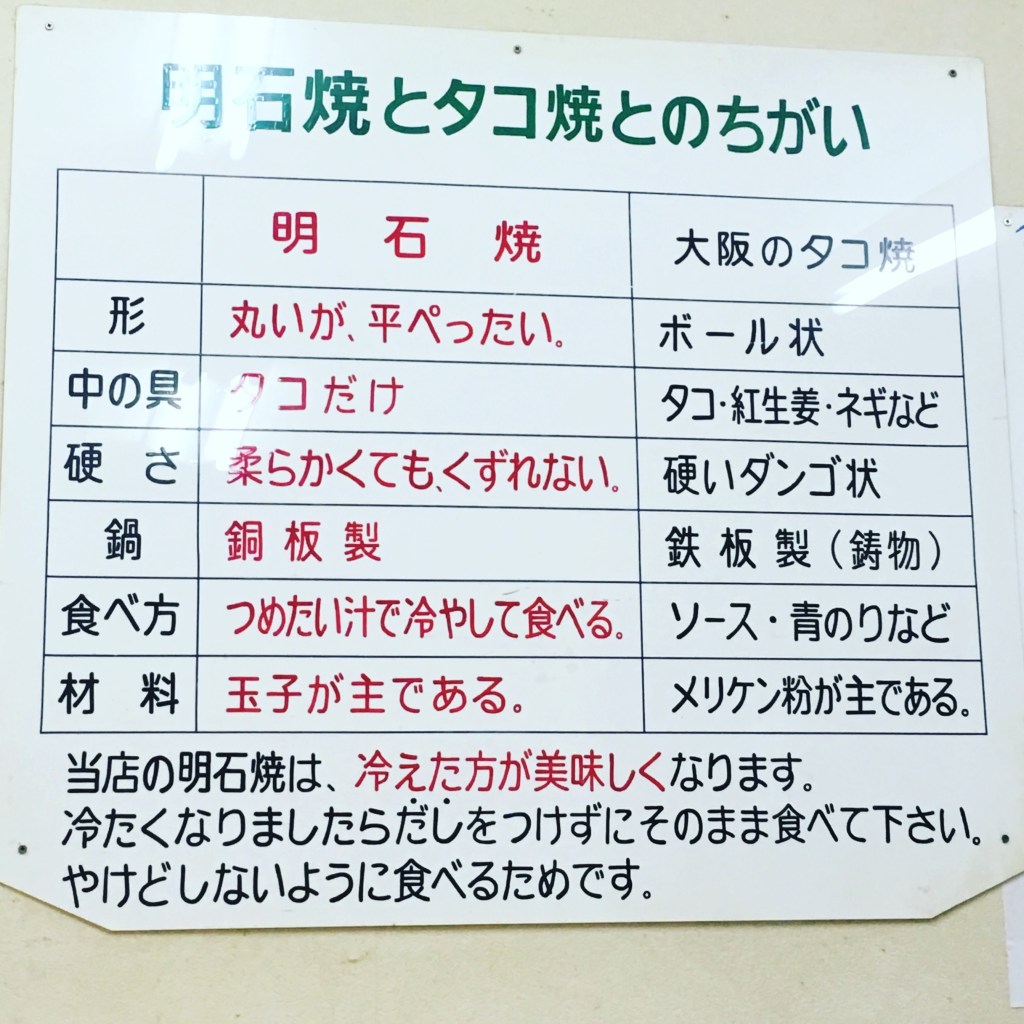 明石焼とタコ焼とのちがい
明石焼 大阪のタコ焼
形 丸いが、平ぺったい。 ボール状
中の具 タコだけ タコ・紅生姜・ネギなど
硬さ 柔らかくても、くずれない。 硬いダンゴ状
鍋 銅板製 鉄板製(鋳物)
食べ方 つめたい汁で冷やして食べる。 ソース・青のりなど
材料 玉子が主である。 メリケン粉が主である。
当店の明石焼は、冷えた方が美味しくなります。
冷たくなりましたらだしをつけずにそのまま食べて下さい。
やけどしないように食べるためです。